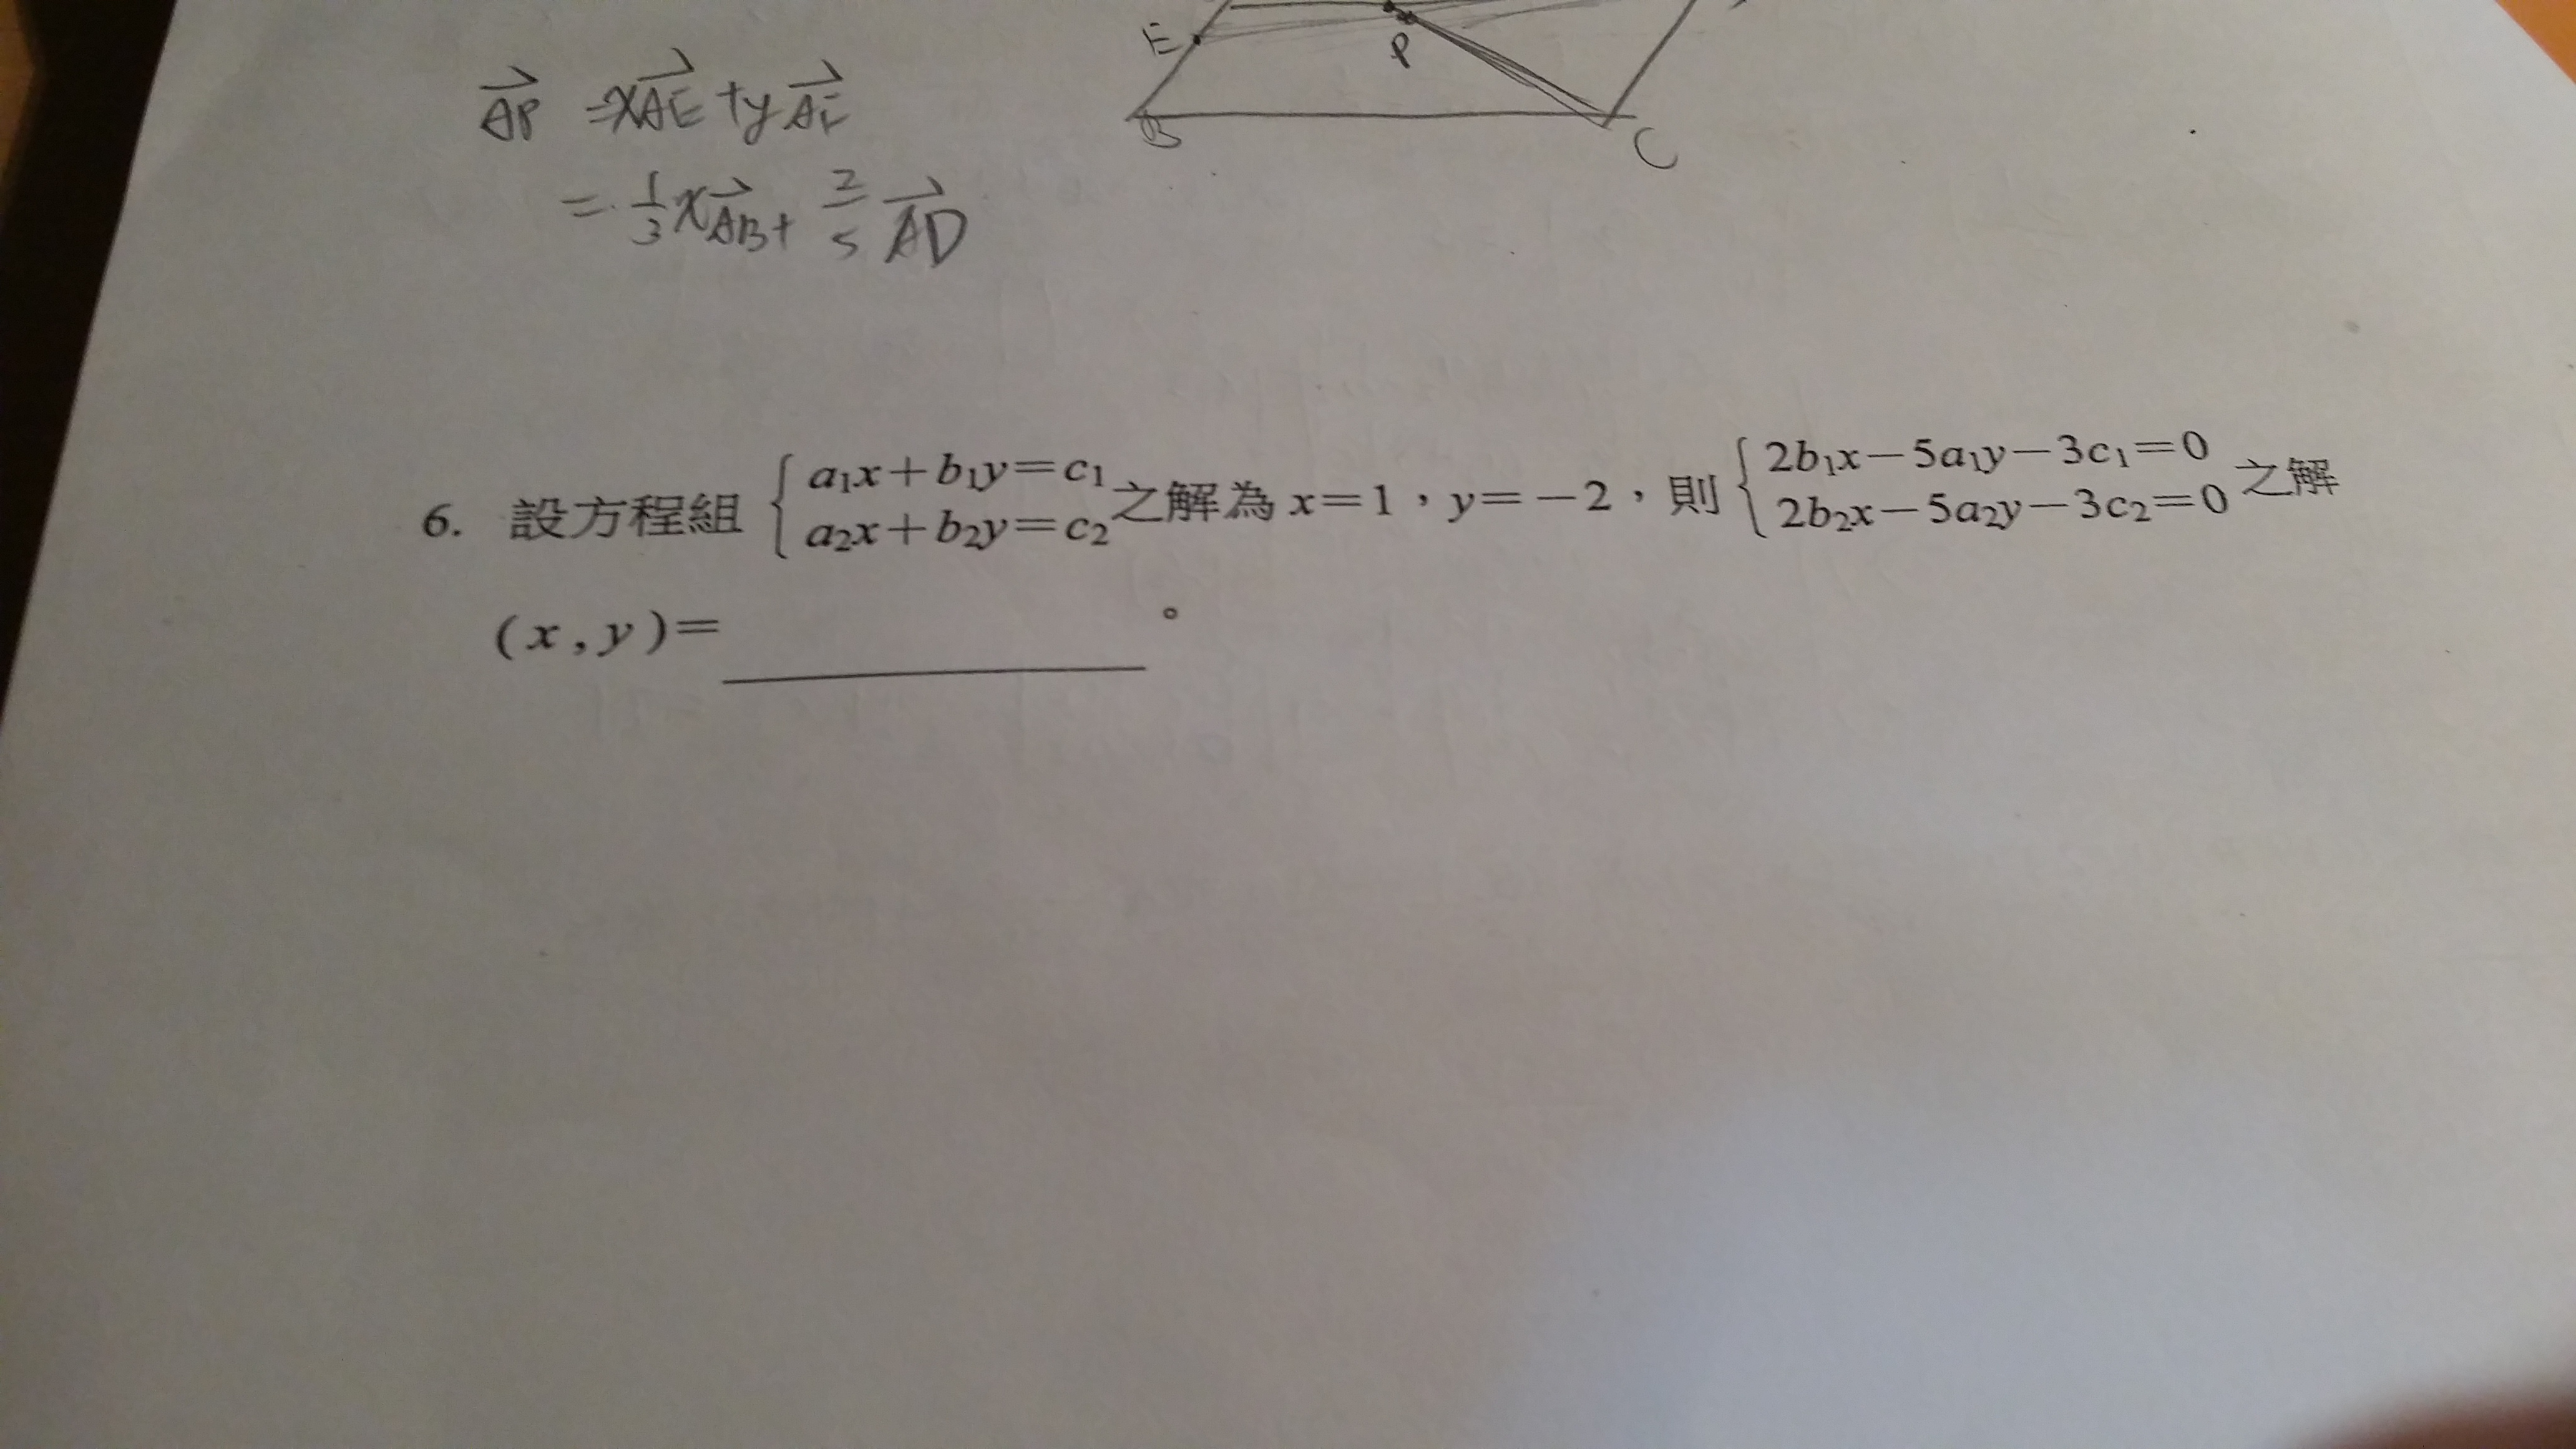 E
P
B
C
AP = xAE + yAF
= 1/3 xAB + 2/5 AD
6. 設方程組 { a₁x+b₁y=c₁ a₂x+b₂y=c₂ 之解為 x=1，y=−2，則 { 2b₁x−5a₁y−3c₁=0 2b₂x−5a₂y−3c₂=0 之解
(x,y)=＿＿＿＿。